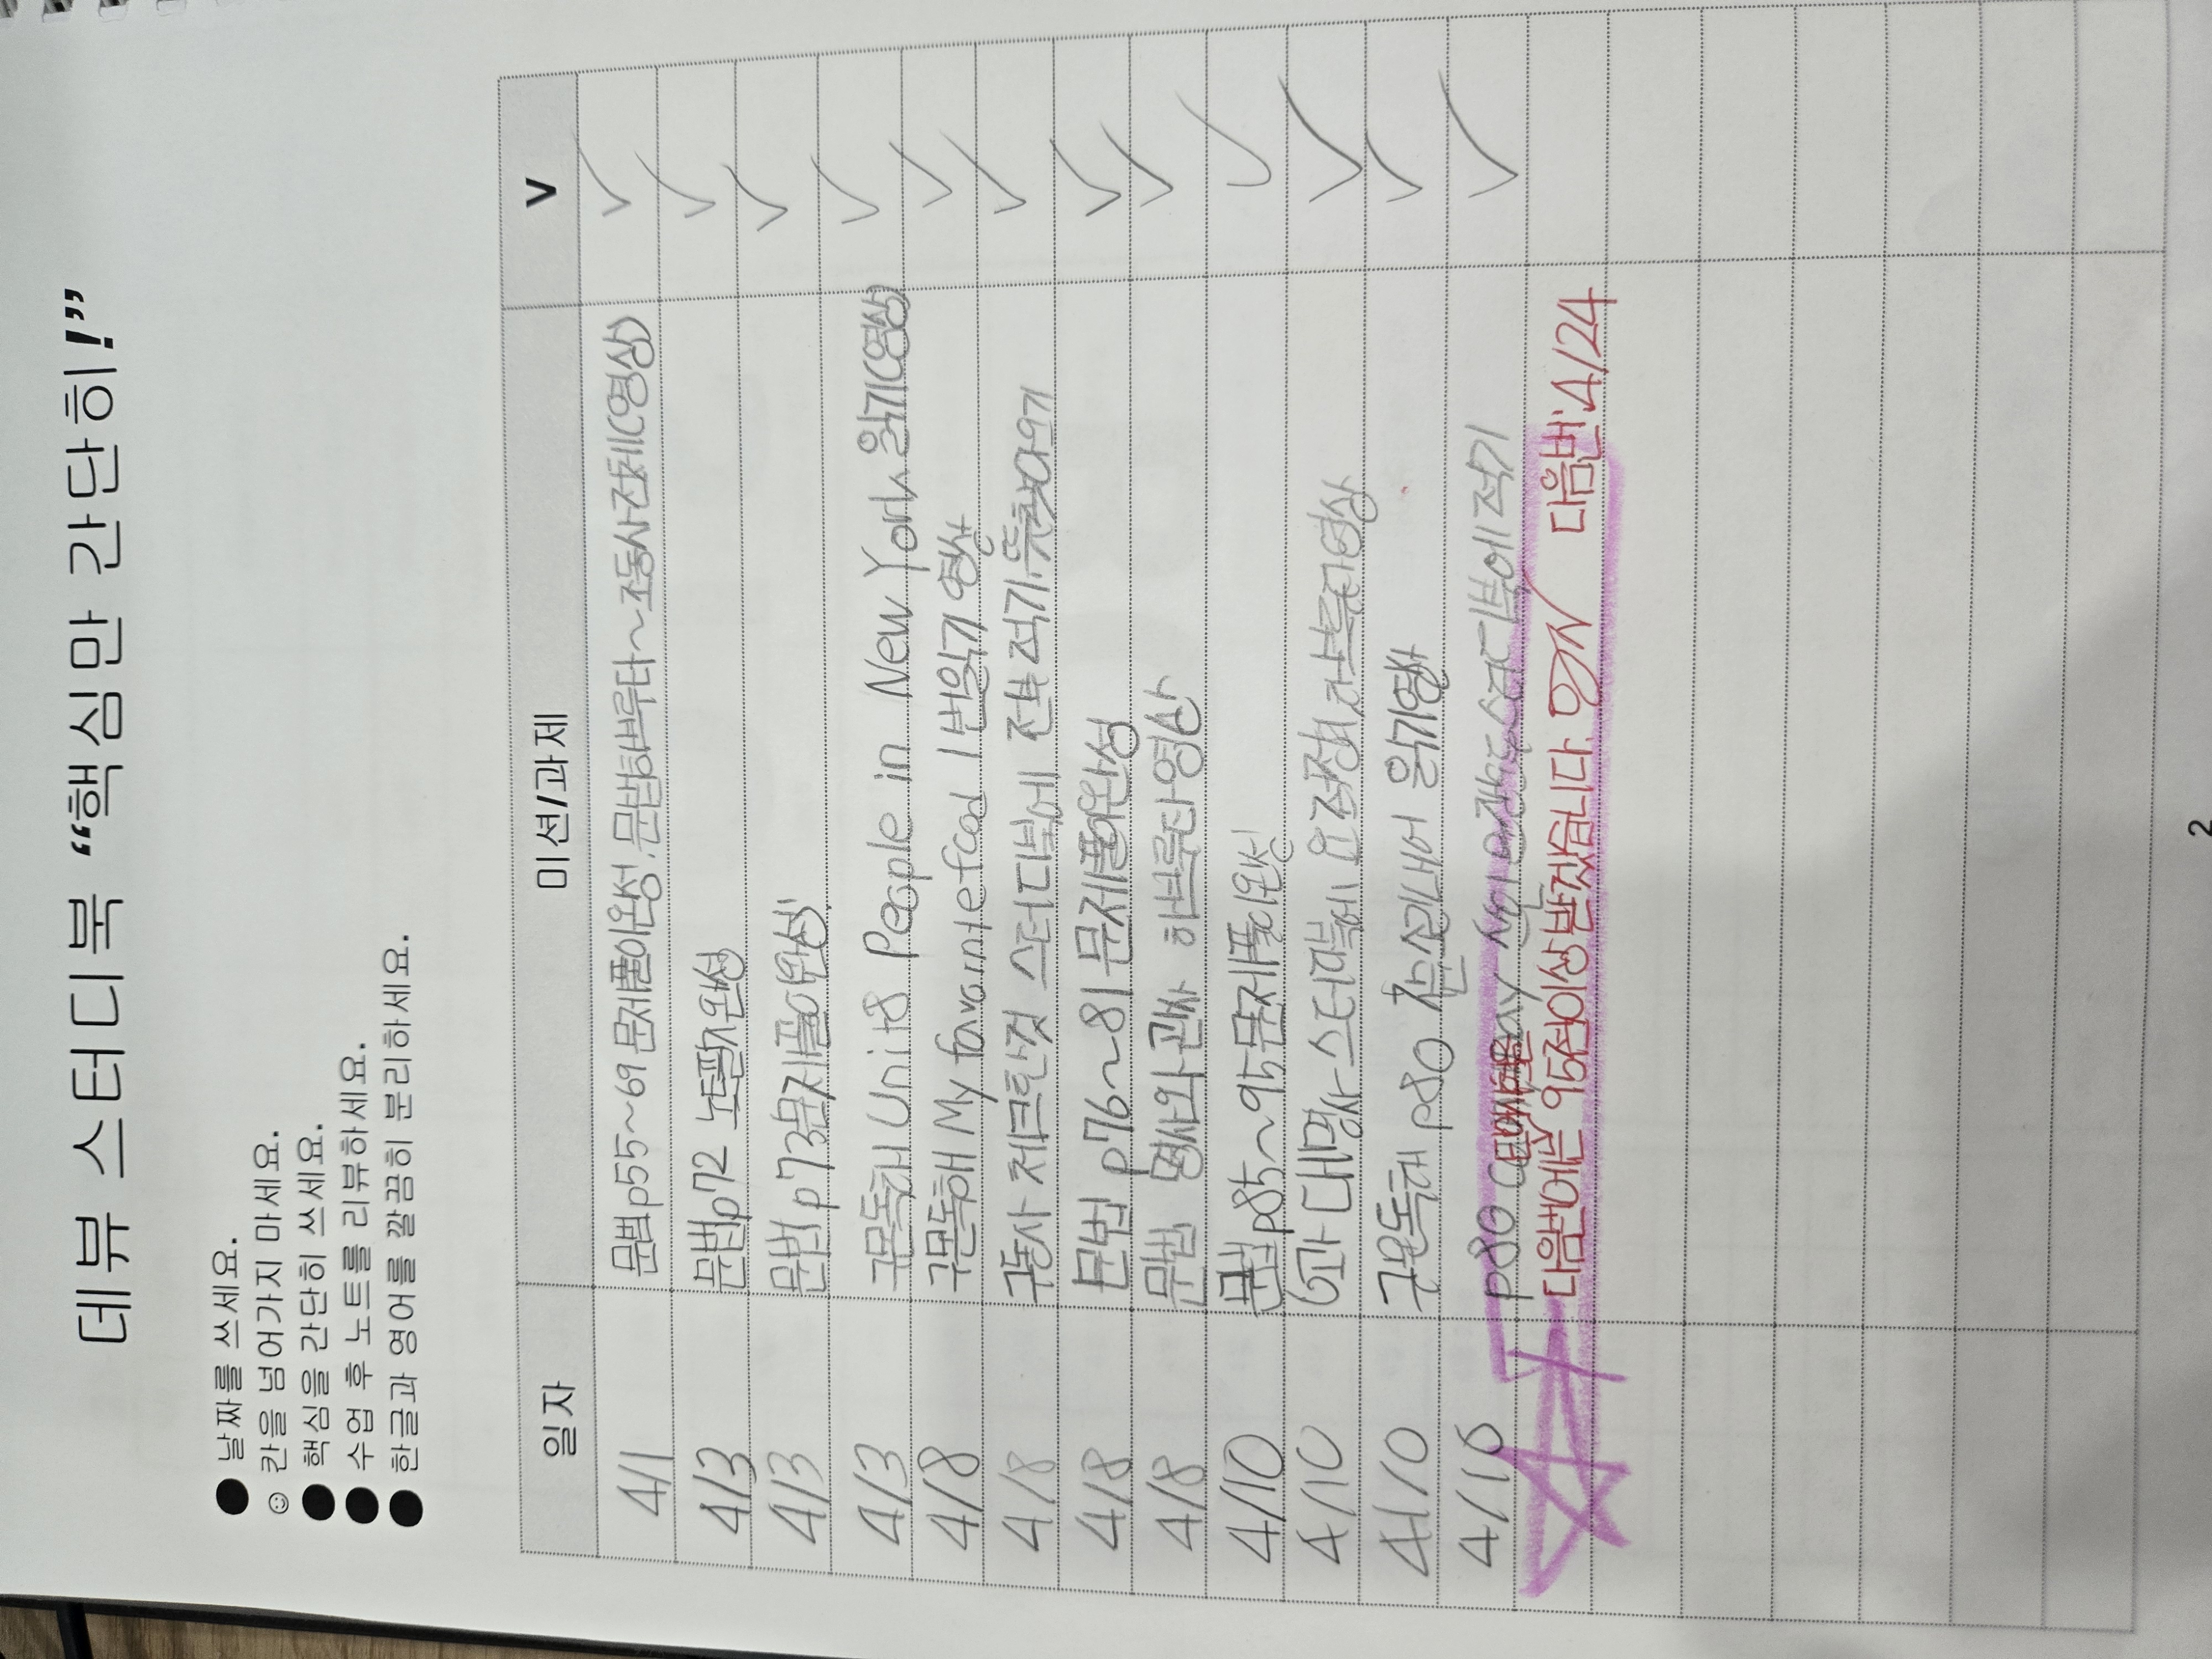 데뷰 스터디북 “핵심만 간단히!”
● 날짜를 쓰세요.
☺ 칸을 넘어가지 마세요.
● 핵심을 간단히 쓰세요.
● 수업 후 노트를 리뷰하세요.
● 한글과 영어를 깔끔히 분리하세요.
일자 미션/과제 V
4/1 문법p55~69 문제풀이완성. 문법하브루타~조동사전체(영상) ✓
4/3 문법p72 노트필기완성 ✓
4/3 문법 p73문제풀이완성! ✓
4/3 구몬독해 Unit8 People in New York 읽기(영상) ✓
4/8 구몬독해 My 1번읽기 영상 ✓
4/8 구동사 체크한것 스터디북에 전부 적기, 뜻찾아오기 ✓
4/8 문법 p76~81 문제풀이완성 ✓
4/8 문법 명사와 관사 하브루타영상 ✓
4/10 문법p85~95문제풀이완성 ✓
4/10 6과 대명사 스터디북에 하브루타영상 ✓
4/10 구몬독해 p80 읽기영상 ✓
4/10 p80 스터디북에 적기 ✓
단어시험은
다음번에는 95점이상 받겠습니다. 다음번:4/24
2